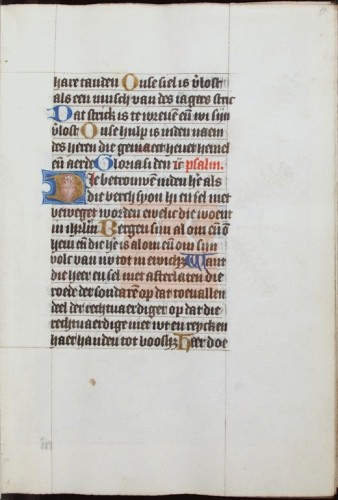 hare tanden Onse siel is v̄lost
als een musch van des iagers stric
Dat stric is te wreuen eñ wi sijn
v̄lost Onse hulp is inden naem
des heren die gemaect heuet hemel
eñ aerde Gloria si den ic̄ psalm.
Die betrouwē inden hē als
die berch syon hi en sel niet
beweget worden ewelic die woent
in ihr̄lm̄ Bergen sijn al om eñ ō
hem eñ die hē is al om eñ om sijn
volc van nv tot in ewich Want
die heer en sel niet afterlaten die
roede der sondarē op dat toeuallen
deel der rechtuaerdiger op dat die
rechtuaerdige niet wt en reycken
haer handen tot boosh Heer doe